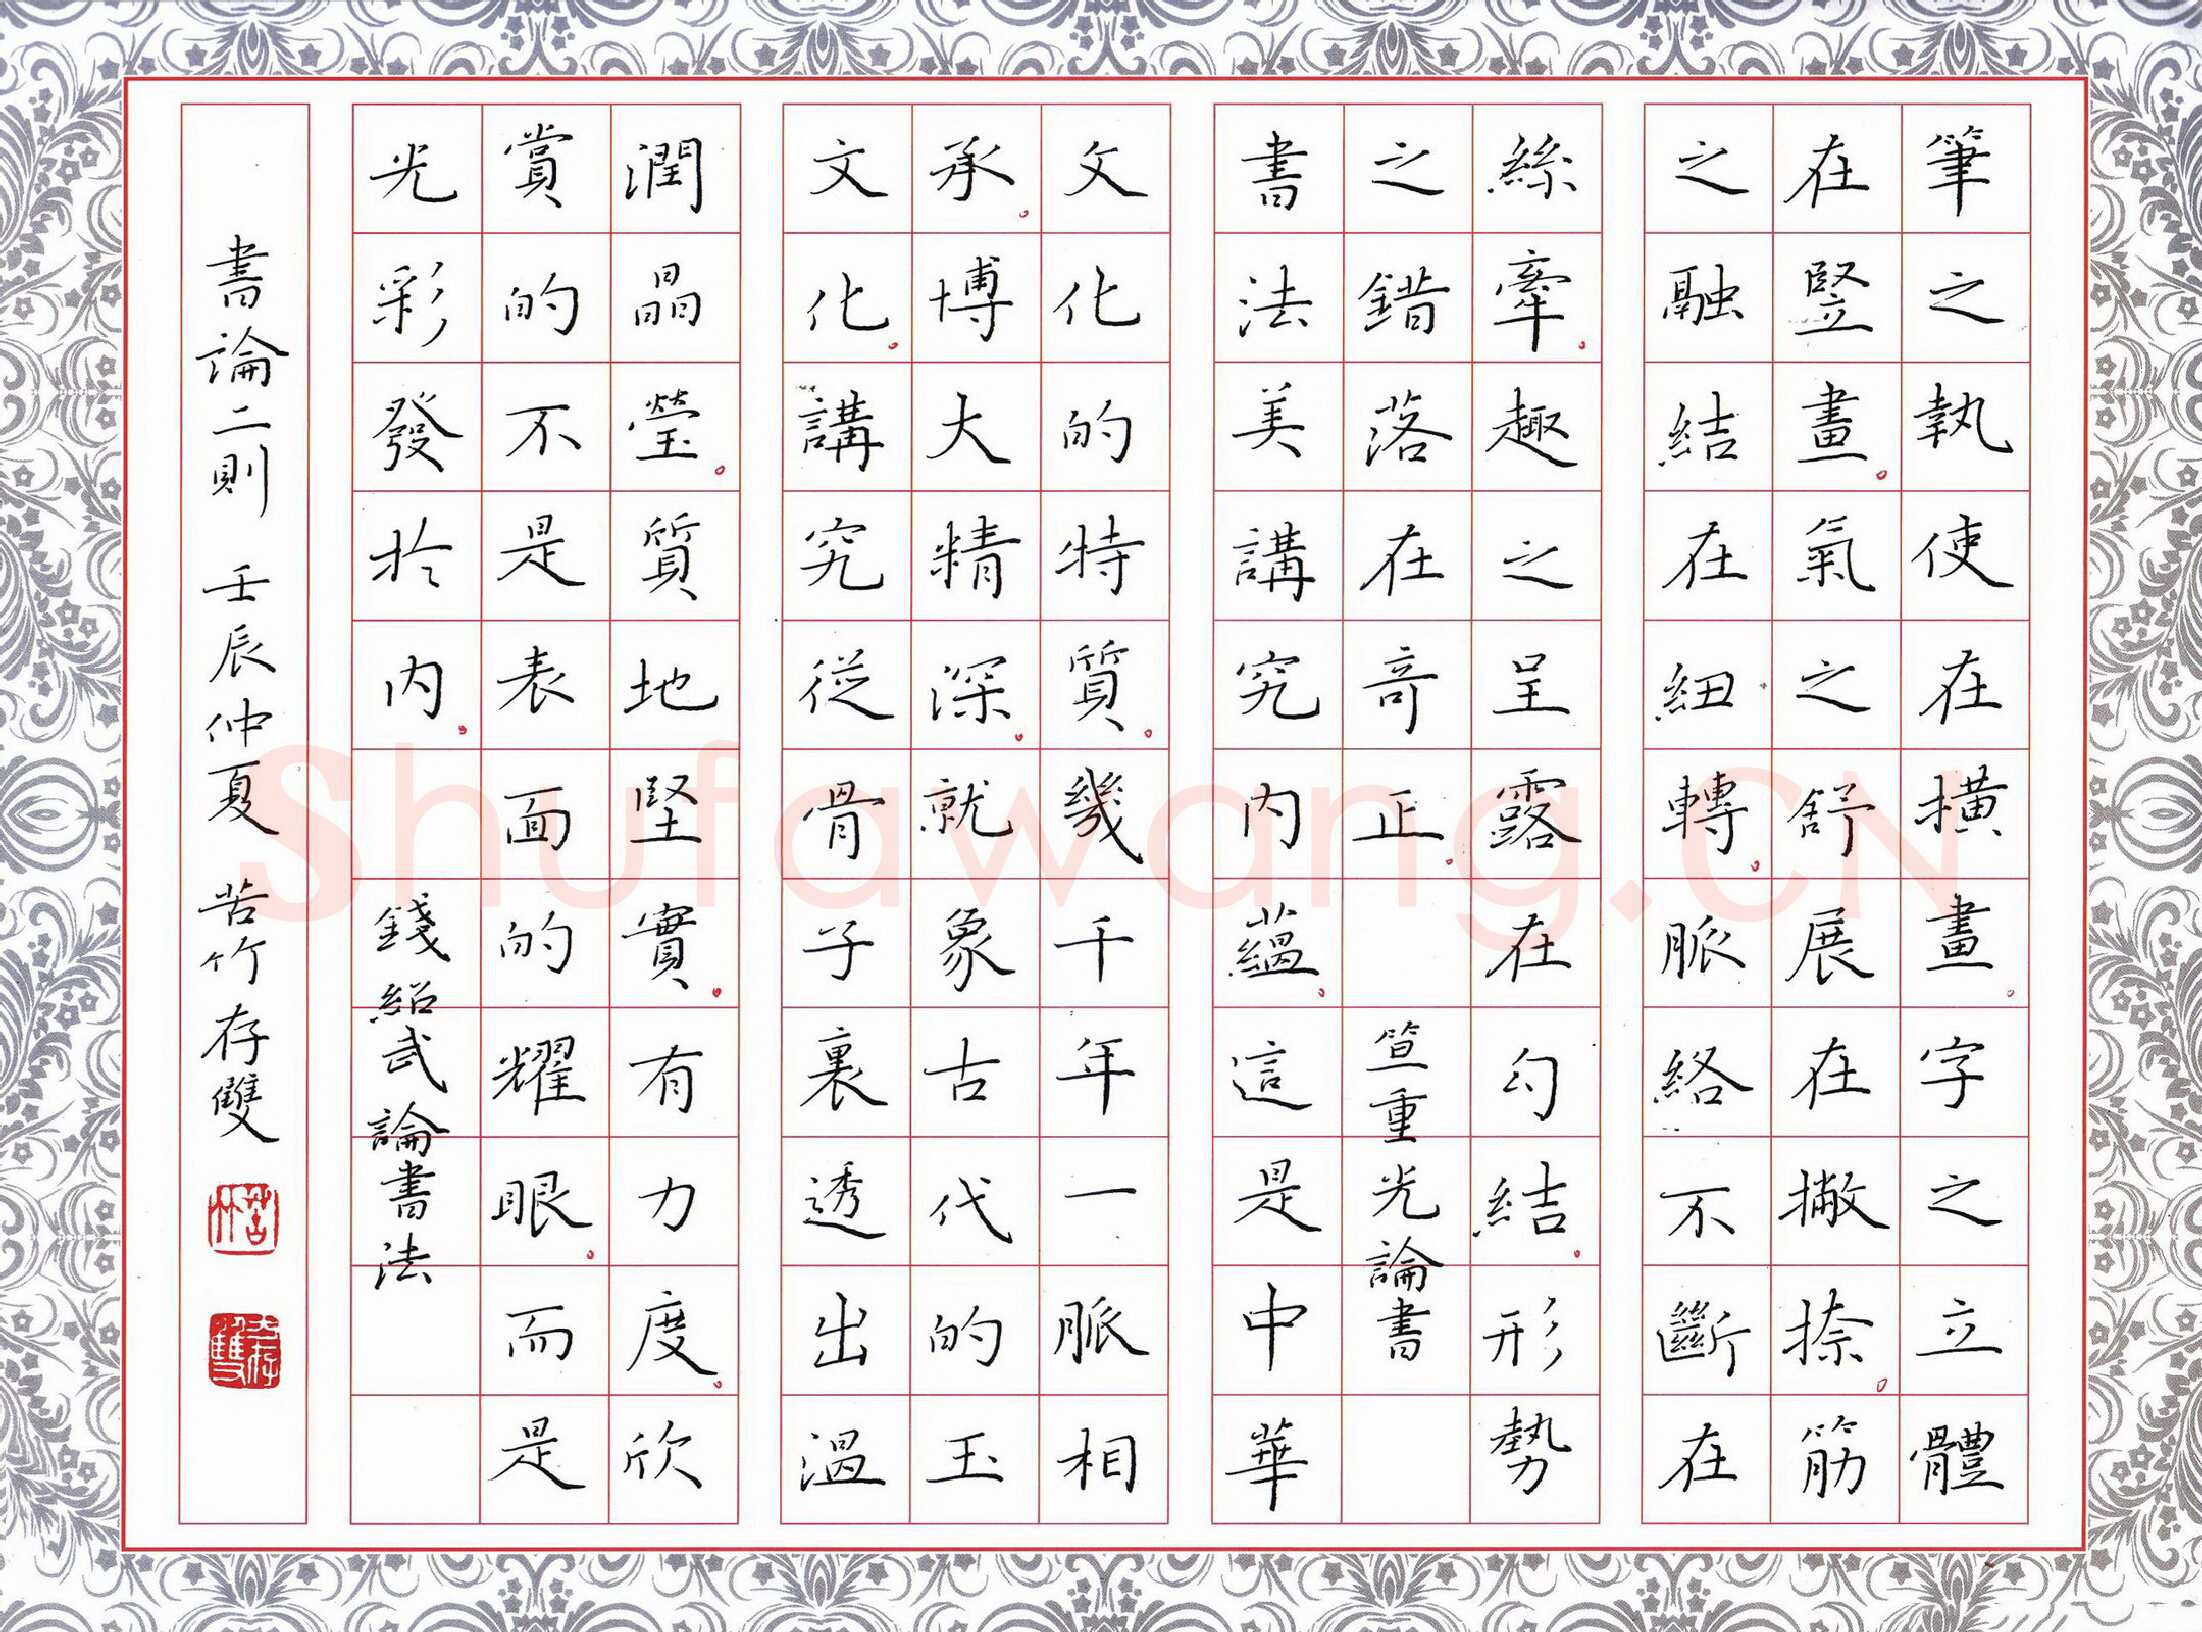 筆之執使在橫畫。字之立體
在竪畫。氣之舒展在撇捺。筋
之融結在紐轉。脈絡不斷在
絲牽。趣之呈露在勾結。形勢
之錯落在奇正。笪重光論書
書法美講究內蘊。這是中華
文化的特質。幾千年一脈相
承。博大精深。就象古代的玉
文化。講究從骨子裏透出溫
潤晶瑩。質地堅實。有力度。欣
賞的不是表面的耀眼。而是
光彩發於內。錢紹武論書法
書論二則 壬辰仲夏 苦竹存雙
苦竹
存雙
Shufawang.CN